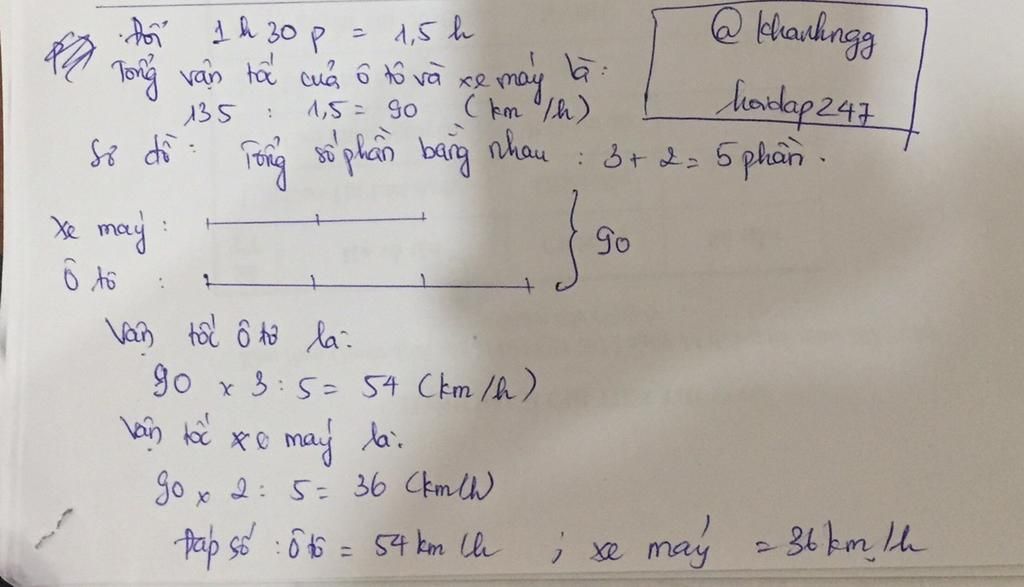 Đổi 1h30p = 1,5h
Tổng vận tốc của ô tô và xe máy là:
135 : 1,5 = 90 (km/h)
@khanhngg
hoidap247
Sơ đồ: Tổng số phần bằng nhau : 3 + 2 = 5 phần.
xe máy :
Ô tô :
90
Vận tốc ô tô là:
90 x 3 : 5 = 54 (km/h)
Vận tốc xe máy là:
90 x 2 : 5 = 36 (km/h)
Đáp số : Ô tô = 54 km/h ; xe máy = 36 km/h